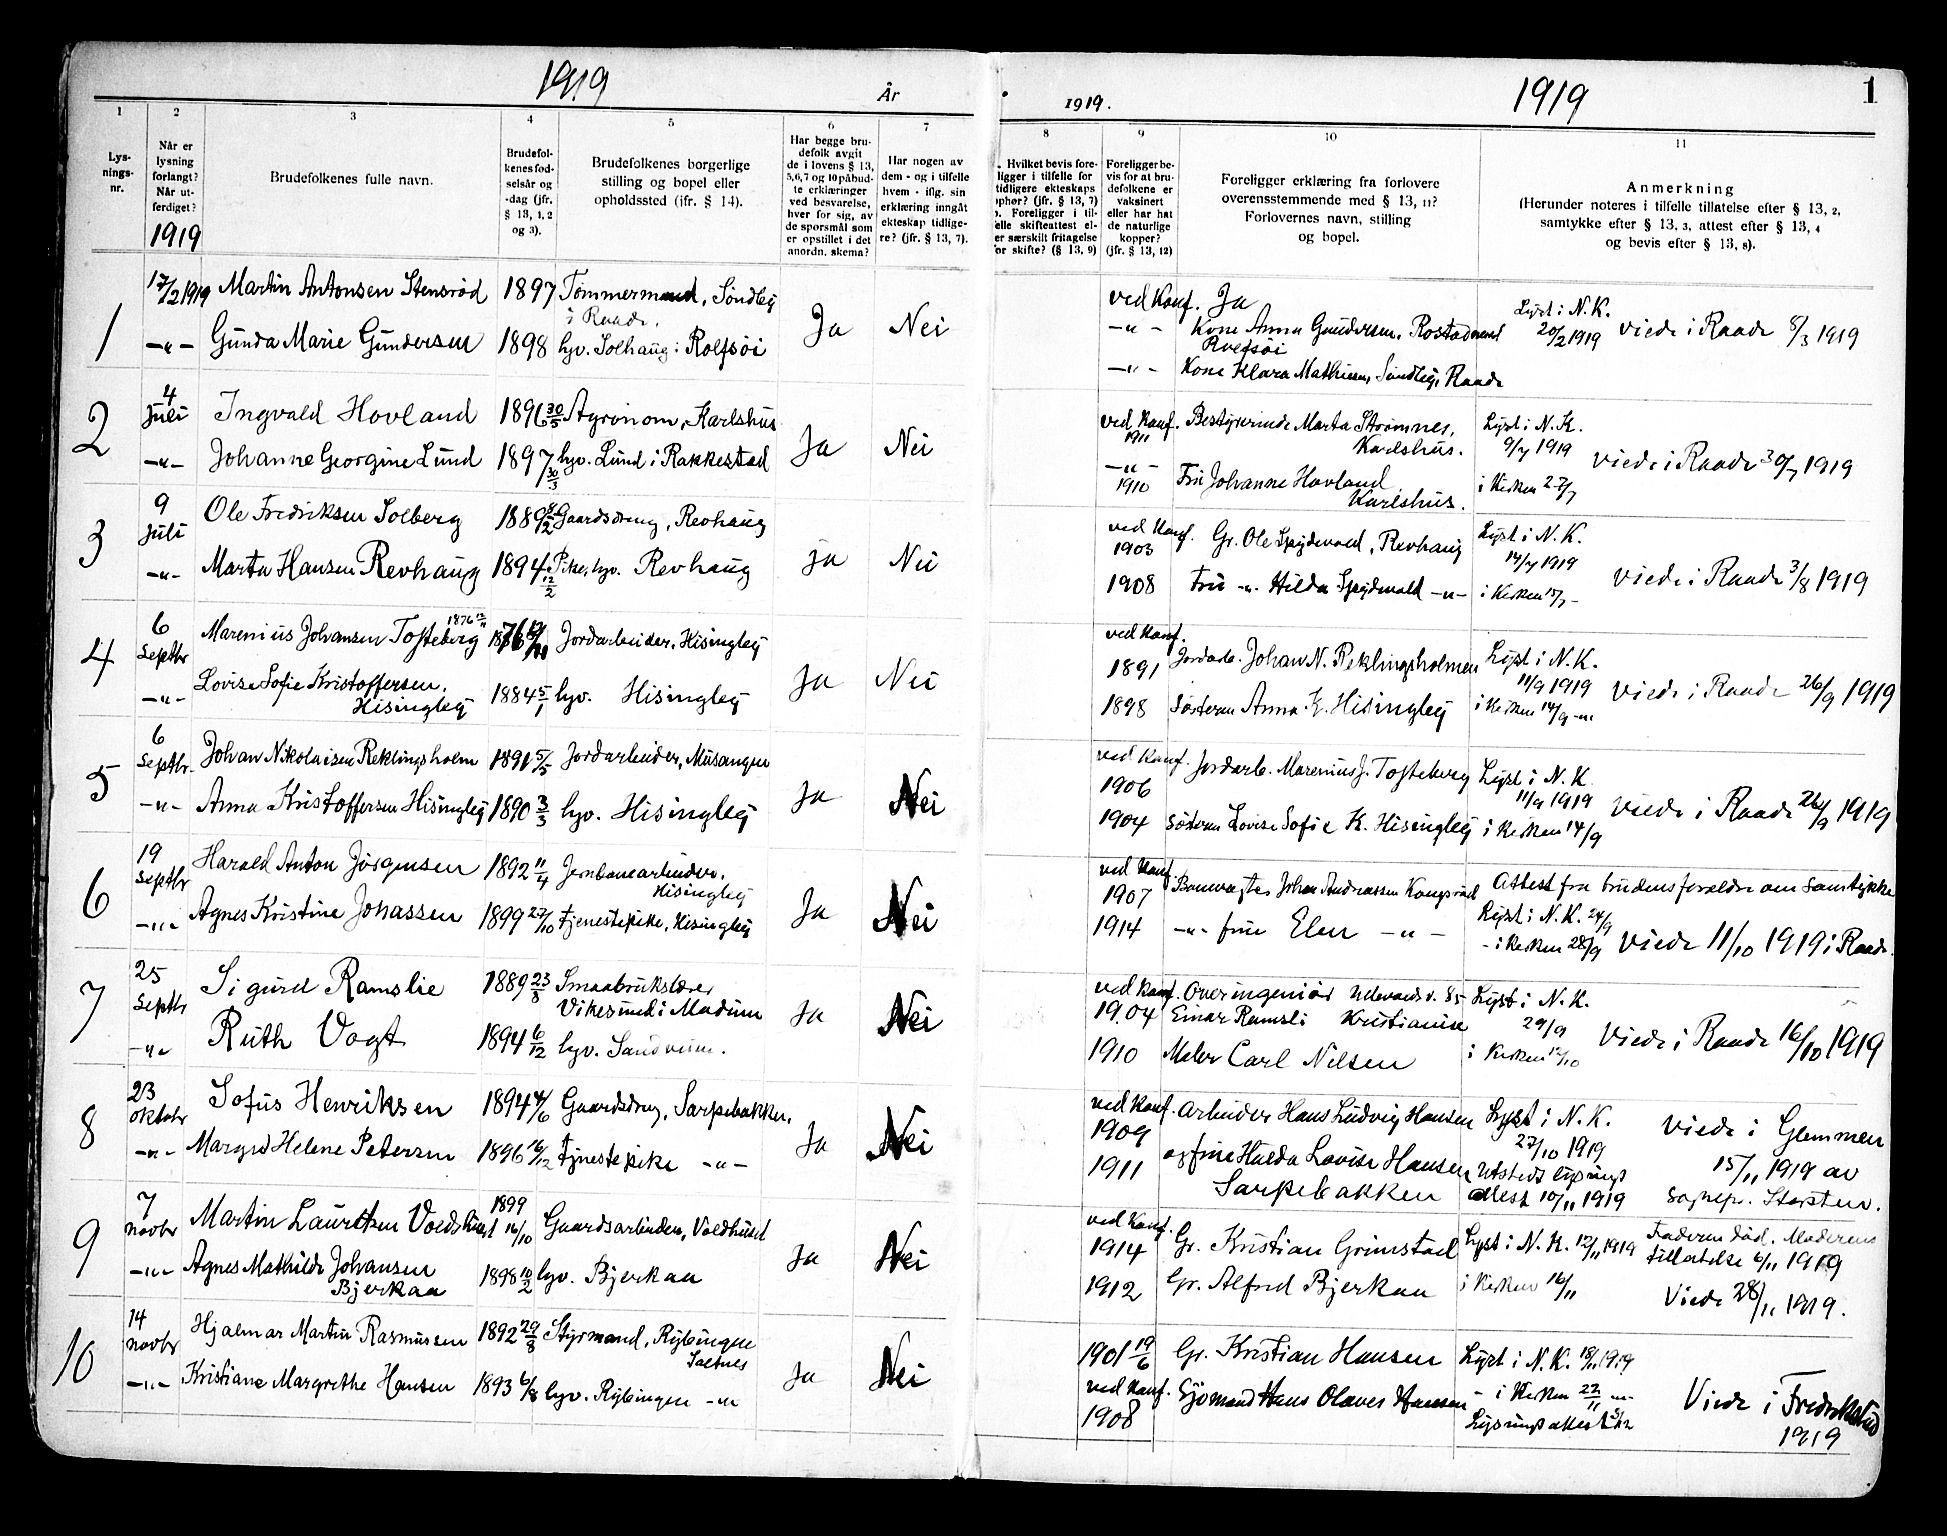 1919
År
1919.
1919
1
1
2
3
4
5
6
7
8
9
10
11
Lys-
nings-
nr.
Når er
lysning
forlangt?
Når ut-
ferdiget?
1919
Brudefolkenes fulle navn.
Brudefol-
kenes fød-
selsår og
-dag (jfr.
§ 13, 1, 2
og 3).
Brudefolkenes borgerlige
stilling og bopel eller
opholdssted (jfr. § 14).
Har begge bru-
defolk avgit
de i lovens § 13,
5,6,7 og 10 påbud-
te erklæringer
ved besvarelse,
hver for sig, av
de spørsmål som
er opstillet i det
anordn. skema?
Har nogen av
dem - og i tilfelle
hvem - iflg. sin
erklæring inngåt
ekteskap tidlige-
re? (jfr. § 13, 7).
Hvilket bevis fore-
ligger i tilfelle for
tidligere ekteskaps
ophør? (jfr. § 13, 7)
Foreligger i til-
elle skifteattest el-
er særskilt fritagelse
or skifte? (§ 13, 9)
Foreligger be-
vis for at bru-
defolkene er
vaksinert
eller har hat
de naturlige
kopper?
(jfr. § 13, 12)
Foreligger erklæring fra forlovere
overensstemmende med § 13, 11?
Forlovernes navn, stilling
og bopel.
Anmerkning
(Herunder noteres i tilfelle tillatelse efter § 13, 2,
samtykke efter § 13, 3, attest efter § 13, 4
og bevis efter § 13, 8).
1
17/2 1919 Martin Antonsen Stensrød 1897 Tømmermand, Søndbey
i Raade.
-"- Gunda Marie Gundersen 1898 hv. Solhaug i Rolfsøi
Ja Nei
ved Konf. Ja
-"- Kone Anna Gundersen, Rostad
Rolfsøi
-"- Kone Klara Mathisen, Raade
Lyst i N. K.
20/2 1919 viede i Raade 8/3 1919
2
4 Juli Ingvald Hovland 1896 30/5 Agronom, Karlshus
-"- Johanne Georgine Lund 1897 30/3 hv. Lund i Rakkestad
Ja Nei
ved Konf. 1911 Bestyrerinde Marta Strømnes,
Karlshus.
-"- 1910 Frü Johanne Hovland
Karlshus.
Lyst i N. K.
9/7 1919
i Kirken 27/7
viede i Raade 30/7 1919
3
9 Juli Ole Fredriksen Solberg Gaardsdreng, Revhaug
-"- Marta Hansen Revhaug 1894 12/2 Pike, hv. Revhaug
Ja Nei
ved Konf. 1903 Gr. Ole Spydevold, Revhaug
1908 Frü -"- Hilda Spydevold -"-
Lyst i N. K.
14/7 1919
i Kirken
viede i Raade 3/8 1919
4
6 Septbr Marenius Johansen Tofteberg 1876 Jordarbeider, Hisingley
-"- Lovise Sofie Kristoffersen,
Hisingley 1884 5/1 hv. Hisingley
Ja Nei
ved Konf.
1891 Jordarb. Johan N. Reklingsholmen
1898 Søsteren Anna K. Hisingley
Lyst i N. K.
11/9 1919
i Kirken 14/9
Viede i Raade 26/9 1919
5
6 Septbr. Johan Nikolaisen Reklingsholm 1891 5/5 Jordarbeider, Musangen
-"- Anna Kristoffersen Hisingley 1890 3/3 hv. Hisingley
Ja Nei
ved Konf.
1906 Jordarb. Marenius J. Tofteberg
1904 Søsteren Lovise Sofie K. Hisingley
Lyst i N. K.
11/9 1919
i Kirken 14/9
viede i Raade 26/9 1919
6
19 Septbr Harald Anton Jørgensen 1892 11/4 Jernbanearbeider,
Hisingley
-"- Agnes Kristine Johassen 1899 27/10 Tjenestepike, Hisingley
Ja Nei
ved Konf.
1907 Banevogter Johan Andreassen Kongsrød
1914 -"- frue Elen -"-
Attest fra brudens forældre om samtykke
Lyst i N. K. 24/9
- i Kirken 28/9 Viede 11/10 1919 i Raade.
7
25 Septbr Sigurd Ramslie 1889 23/8 Smaabrukslærer
Vikesund i Modum
-"- Ruth Vogt 1894 6/12 hv.
Ja Nei
ved Konf. Overingeniør Ullevoldsv. 85
1904 Einar Ramsli Kristiania
1910 Maler Carl Nilsen
Lyst i N. K.
29/9
i Kirken 12/10
Viede i Raade 16/10 1919
8
23 Oktobr Sofus Henriksen 1894 4/6 Gaardsdreng, Sarpebakken.
-"- Margid Helene Petersen 1896 16/12 Tjenestepike -"-
Ja Nei
ved Konf. Arbeider Hans Ludvig Hansen
1909
1911 og frue Hulda Lovise Hansen
Sarpebakken
Lyst i N. K.
27/10 1919
Utstedt lysnings
attest 10/11 1919
Viede i Glemmen
15/11 1919 av
Sognepr. Storsten.
9
7 Novbr Martin Lauritsen Voldshuset 1899 16/10 Gaardsarbeider, Voldhuset
-"- Agnes Mathilde Johansen
Bjerkaa 1898 10/2 hv. Bjerkaa
Ja Nei
ved Konf.
1914 Gr. Kristian Grimstad
1912 Gr. Alfred Bjerkaa
Lyst i N. K. 12/11 1919
i Kirken 16/11
Faderen død. Moderens
tillatelse 6/11 1919
Viede 28/11 1919.
10
14 Novbr Hjalmar Martin Rasmussen 1892 29/8 Styrmand, Rybingen
Saltnes
-"- Kristiane Margrethe Hansen 1893 6/8 hv. Rybingen -"-
Ja Nei
1901 19/6 Gr. Kristian Hansen
ved Konf.
1908 Sjømand Hans Olaves Hansen
Lyst i N. K. 18/11 1919
- i Kirken 22/11 -"-
Lysningsattest
Viede i Fredrikstad
1919